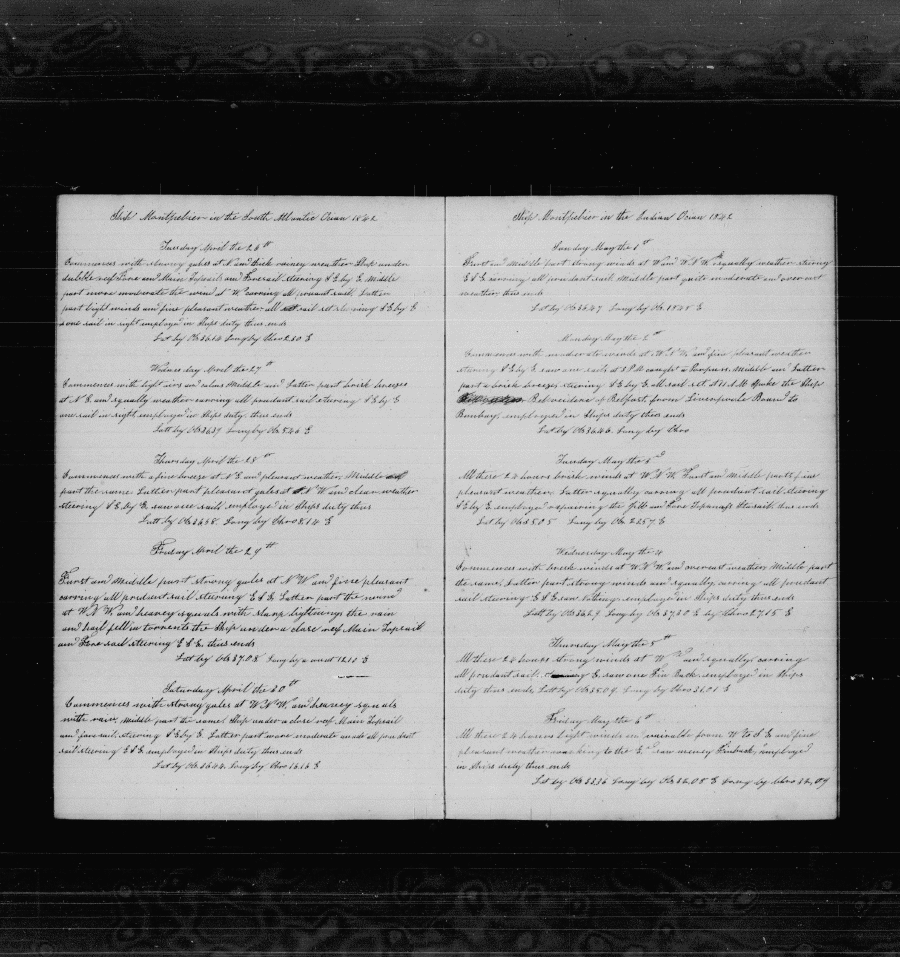 Ship Montpelier in the South Atlantic Ocian 1842
Tuesday April the 26th
Commences with strong gales at N and thick rainey weather Ship under
dubble reef Fore and Main Topsails and Foresail steering S E by E Middle
part more moderate the wind at W carrying all prudant sail Latter
part light winds and fine pleasant weather all sail set steering S E by E
one sail in sight employed in Ships duty thus ends
Lat by Ob 36.14 Long by Chro 2.30 E
Wednesday April the 27th
Commences with light airs and calms Middle and Latter part brisk breezes
at N E and squally weather carrying all prudant sail steering S E by E
one sail in sight employed in Ships duty thus ends
Latt by Ob 36.39 Long by Ob 5.46 E
Thursday April the 28th
Commences with a fine breeze at N E and pleasant weather Middle
part the same Latter part pleasant gales at N W and clear weather
steering S E by E saw one sail employed in Ships duty thus
Latt by Ob 36.58 Long by Chro 8.14 E
Friday April the 29th
Furst and Middle part strong gales at N W and fine pleasant
carring all prudent sail steering E S E Latter part the wind
at W N W and heavey squals with sharp lightning the rain
and hail fell in torrents the Ship under a close reef Main Topsail
and Fore sail steering E S E thus ends
Latt by Ob 37.08 Long by acount 12.10 E
Saturday April the 30th
Commences with strong gales at W N W and heavey squals
with rain, Middle part the same Ship under a close reef Main Topsail
and fore sail steering S E by E Latter part more moderate made all prudent
sail steering E S E employed in Ships duty thus ends
Lat by Ob 36.44 Long by Chro 16.16 E
Ship Montpelier in the Indian Ocian 1842
Sunday May the 1th
Furst and Middle part strong winds at W and W N W squally weather steering
E S E carrying all prudant sail Middle part quite moderate and overcast
weather thus ends
Lat by Ob 36.47 Long by Ob 18.48 E
Monday May the 2th
Commences with moderate winds at W N W and fine pleasant weather
steering S E by E saw one sail at 5 P M caught a Porpus Middle and Latter
part a brisk breezes steering S E by E all sail set at 11 A M spoke the Ship
Belvidere of Belfast from Liverpoole Bound to
Bombay, employed in Ships duty thus ends
Lat by Ob 36.46 Long by Chro
Tuesday May the 3d
All these 24 hours brisk winds at W N W Furst and Middle parts fine
pleasant weather Latter squally carring all prudent sail steering
S E by E employed repairing the Jibb and Fore Topmast Staisail thus ends
Lat by Ob 35.05 Long by Ob 22.57 E
Wednesday May the 4
Commences with brisk winds at W N W and overcast weather Middle part
the same, Latter part strong winds and squally carring all prudant
sail steering E S E saw nothing employed in Ships duty thus ends
Latt by Ob 36.29 Long by Ob 27.28 E by Chro 27.15 E
Thursday May the 5th
All these 24 hours strong winds at W and squally carring
all prudant sail E saw one Fin Back employed in Ships
duty thus ends Latt by Ob 35.09 Long by Chro 31.01 E
Friday May the 6th
All these 24 hours light winds and vairable from W to S E and fine
pleasant weather working to the E saw meney Finback, employed
in Ships duty thus ends
Lat by Ob 33.36 Long by Ob 32.08 E Long by Chro 32.09